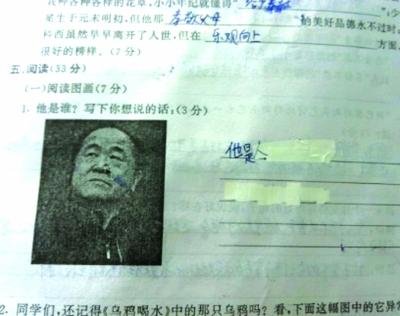 种各种各样的花草,小小年纪就懂得"
星生于元末明初,但他那 孝敬父母 的美好品德永不过时。
西虽然早早离开了人世,但在 乐观向上 方面,
很好的榜样。(7分)
五、阅读(33分)
(一)阅读图画(7分)
1. 他是谁?写下你想说的话:(3分)
他是人
2. 同学们,还记得《乌鸦喝水》中的那只乌鸦吗?看,下面这幅图中的它异常